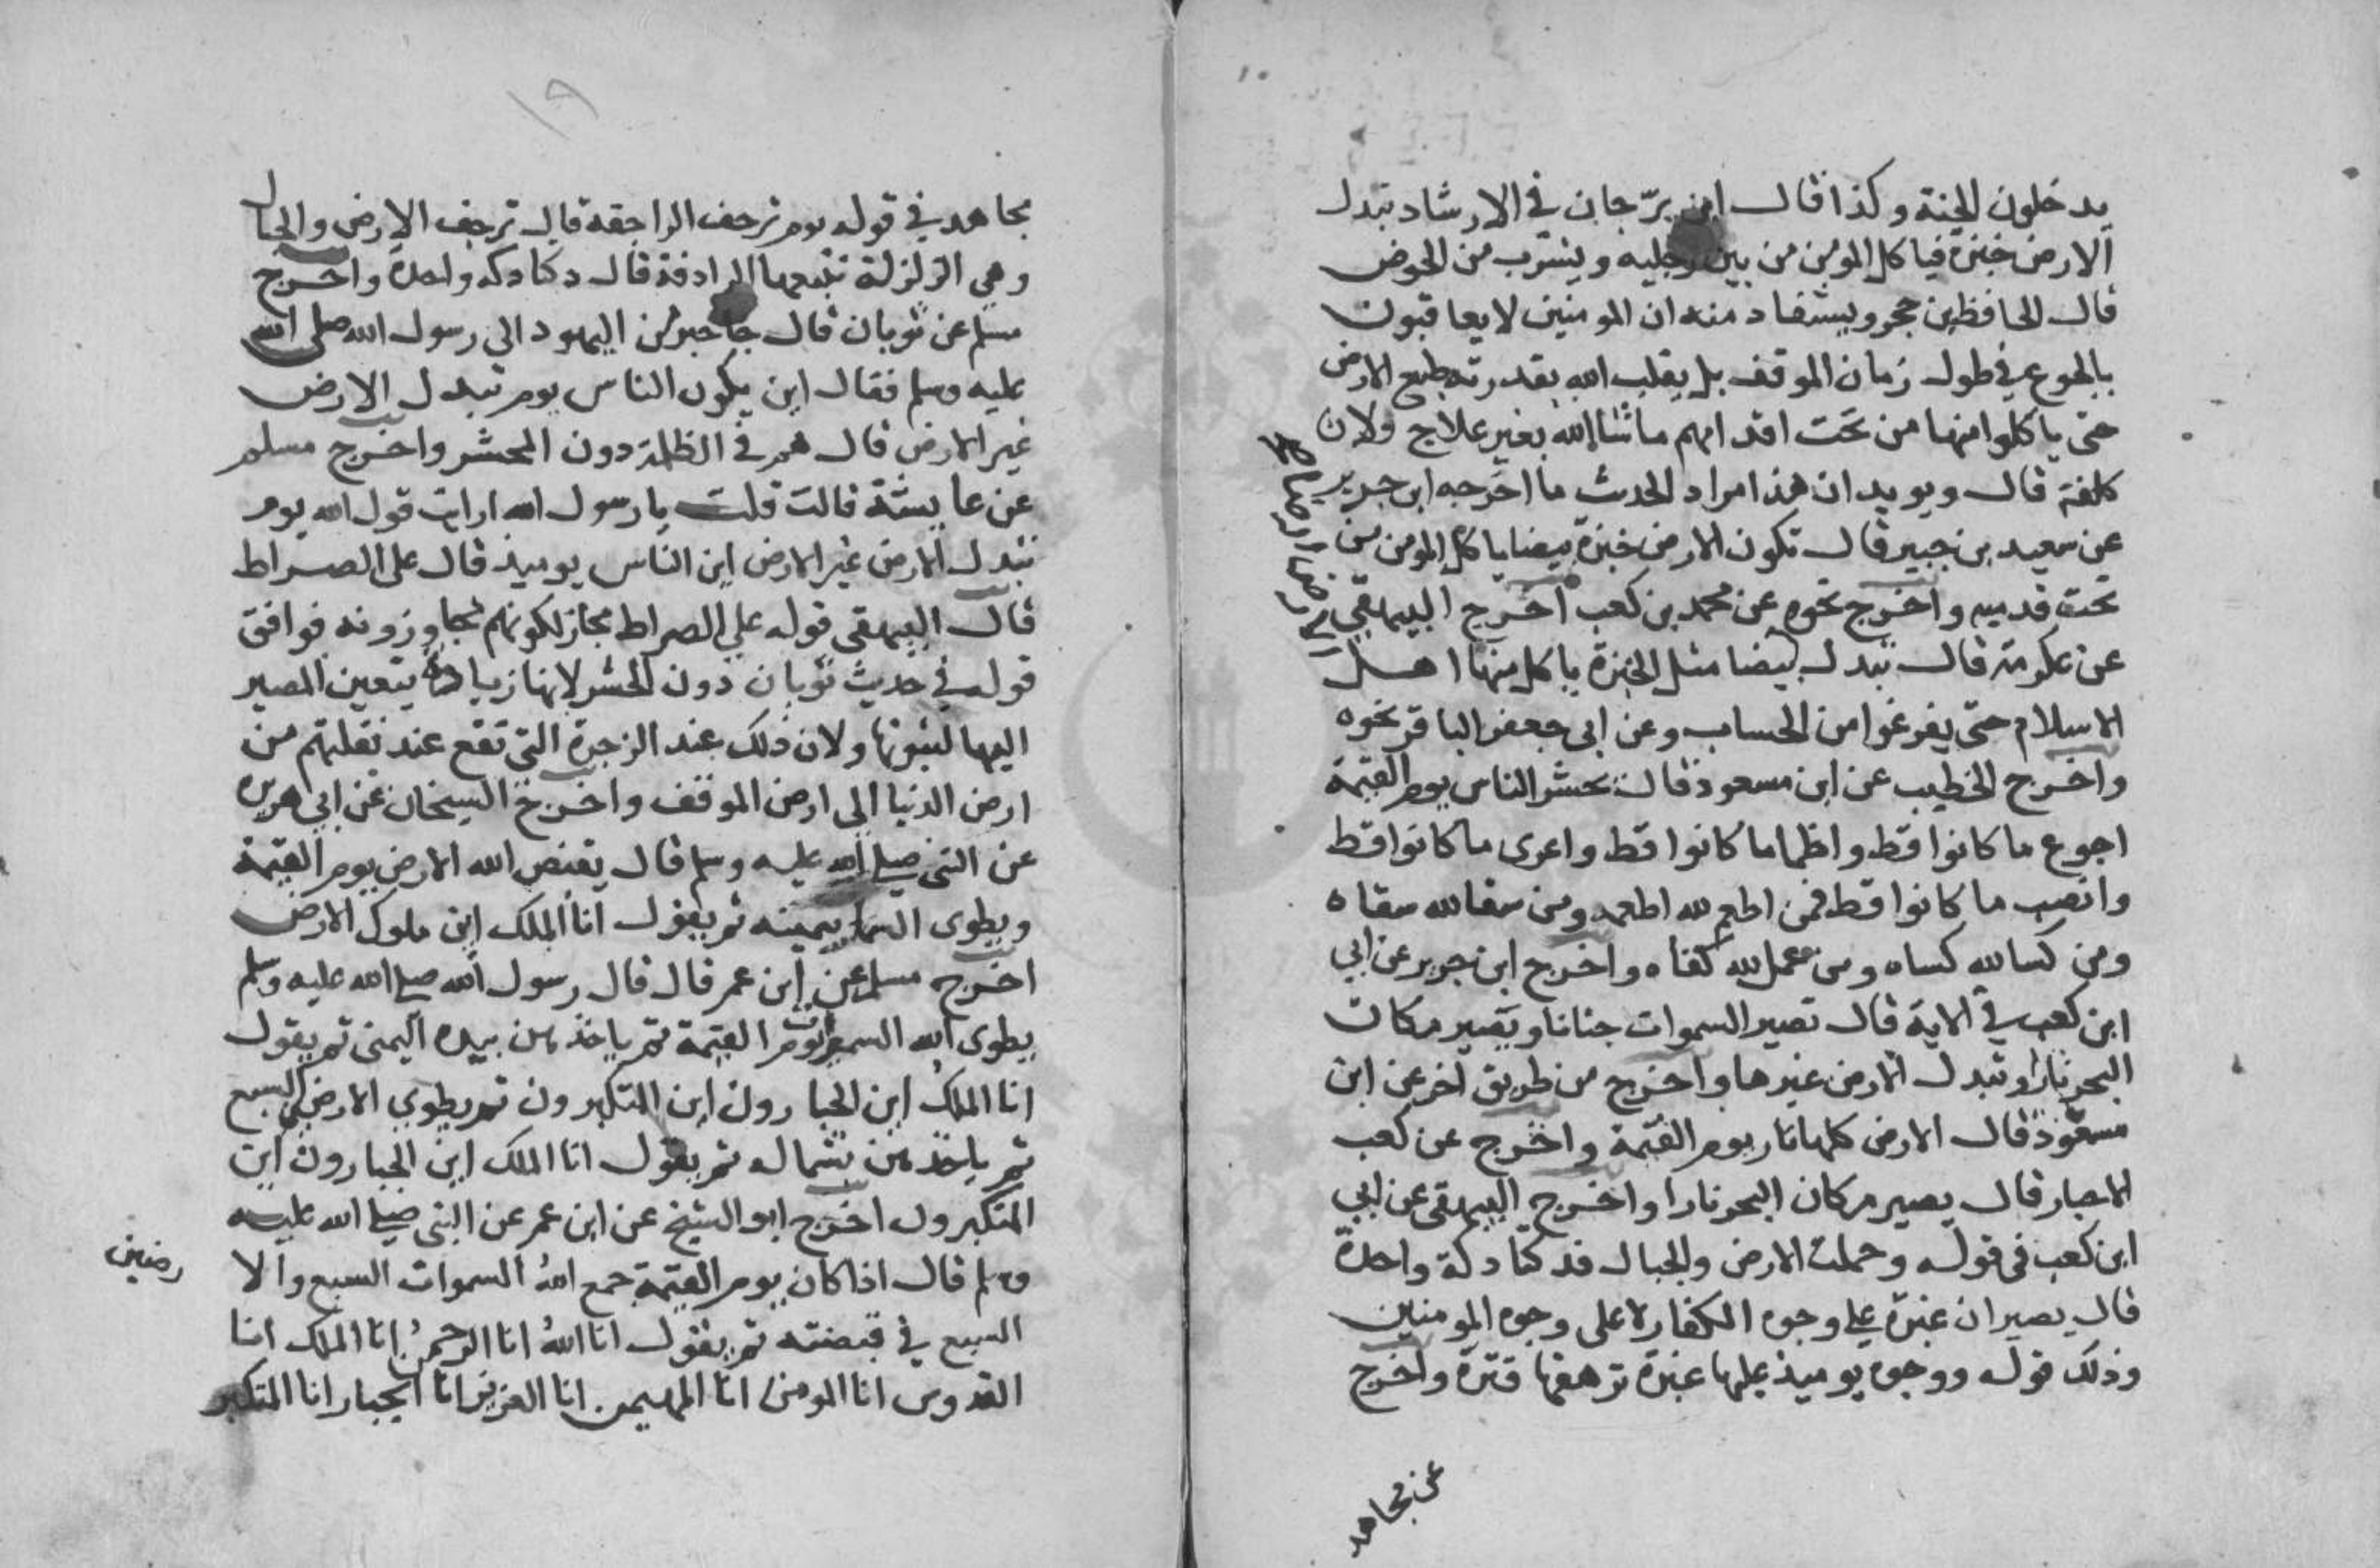 يدخلون الجنة وكذا قال ابن برّجان في الارشاد تبدل
الارض خبزة فياكل المومن من بين رجليه ويشرب من الحوض
قال الحافظ بن حجر ويستفاد منه ان المومنين لا يعاقبون
بالجوع في طول زمان الموقف بل يقلب الله بقدرته طبع الارض
حتى ياكلوا منها من تحت اقدامهم ماشا الله بغير علاج ولا
كلفة قال ويويد ان هذا مراد الحديث ما اخرجه ابن جرير
عن سعيد بن جبير قال تكون الارض خبزة بيضا ياكل المومن من
تحت قدميه واخرج نحوه عن محمد بن كعب اخرج البيهقي
عن عكرمة قال تبدل بيضا مثل الخبزة ياكل منها اهل
الاسلام حتى يفرغوا من الحساب وعن ابي جعفر الباقر نحوه
واخرج الخطيب عن ابن مسعود قال يحشر الناس يوم القيمة
اجوع ما كانوا قط واظما ما كانوا قط واعرى ما كانوا قط
وانصب ما كانوا قط فمن اطعم لله اطعمه ومن سقا لله سقاه
ومن كسا لله كساه ومن عمل لله كفاه واخرج ابن جرير عن ابي
ابن كعب في الاية قال تصير السموات جنانا ويصير مكان
البحر نارا وتبدل الارض غيرها واخرج من طريق اخر عن ابن
مسعود قال الارض كلها نار يوم القيمة واخرج عن كعب
الاحبار قال يصير مكان البحر نارا واخرج البيهقي عن ابي
ابن كعب في قوله وحملت الارض والجبال فدكتا دكة واحدة
قال يصيران غبرة على وجوه الكفار لا على وجوه المومنين
وذلك قوله ووجوه يوميذ عليها غبرة ترهقها قترة واخرج
عن مجاهد
١٩
مجاهد في قوله يوم ترجف الراجفة قال ترجف الارض والجبال
وهي الزلزلة تتبعها الرادفة قال دكتا دكه واحدة واخرج
مسلم عن ثوبان قال جا حبر من اليهود الى رسول الله صلى الله
عليه وسلم فقال اين يكون الناس يوم تبدل الارض
غير الارض قال هم في الظلمة دون المحشر واخرج مسلم
عن عايشة قالت قلت يا رسول الله ارايت قول الله يوم
تبدل الارض غير الارض اين الناس يوميذ قال على الصراط
قال البيهقي قوله على الصراط مجاز لكونهم يجاوزونه فوافق
قوله في حديث ثوبان دون الحشر لانها زيادة يتعين المصير
اليها لثبوتها ولان ذلك عند الزجرة التي تقع عند نقلتهم من
ارض الدنيا الى ارض الموقف واخرج الشيخان عن ابي هريره
عن النبي صلى الله عليه وسلم قال يقبض الله الارض يوم القيمة
ويطوى السما بيمينه ثم يقول انا الملك اين ملوك الارض
اخرج مسلم عن ابن عمر قال قال رسول الله صلى الله عليه وسلم
يطوى الله السموات يوم القيمة ثم ياخذهن بيده اليمنى ثم يقول
انا الملك اين الجبارون اين المتكبرون ثم يطوي الارضين السبع
ثم ياخذهن بشماله ثم يقول انا الملك اين الجبارون اين
المتكبرون اخرج ابو الشيخ عن ابن عمر عن النبي صلى الله عليه
وسلم قال اذا كان يوم القيمة جمع الله السموات السبع والا
رضين
السبع في قبضته ثم يقول انا الله انا الرحمن انا الملك انا
القدوس انا المومن انا المهيمن انا العزيز انا الجبار انا المتكبر